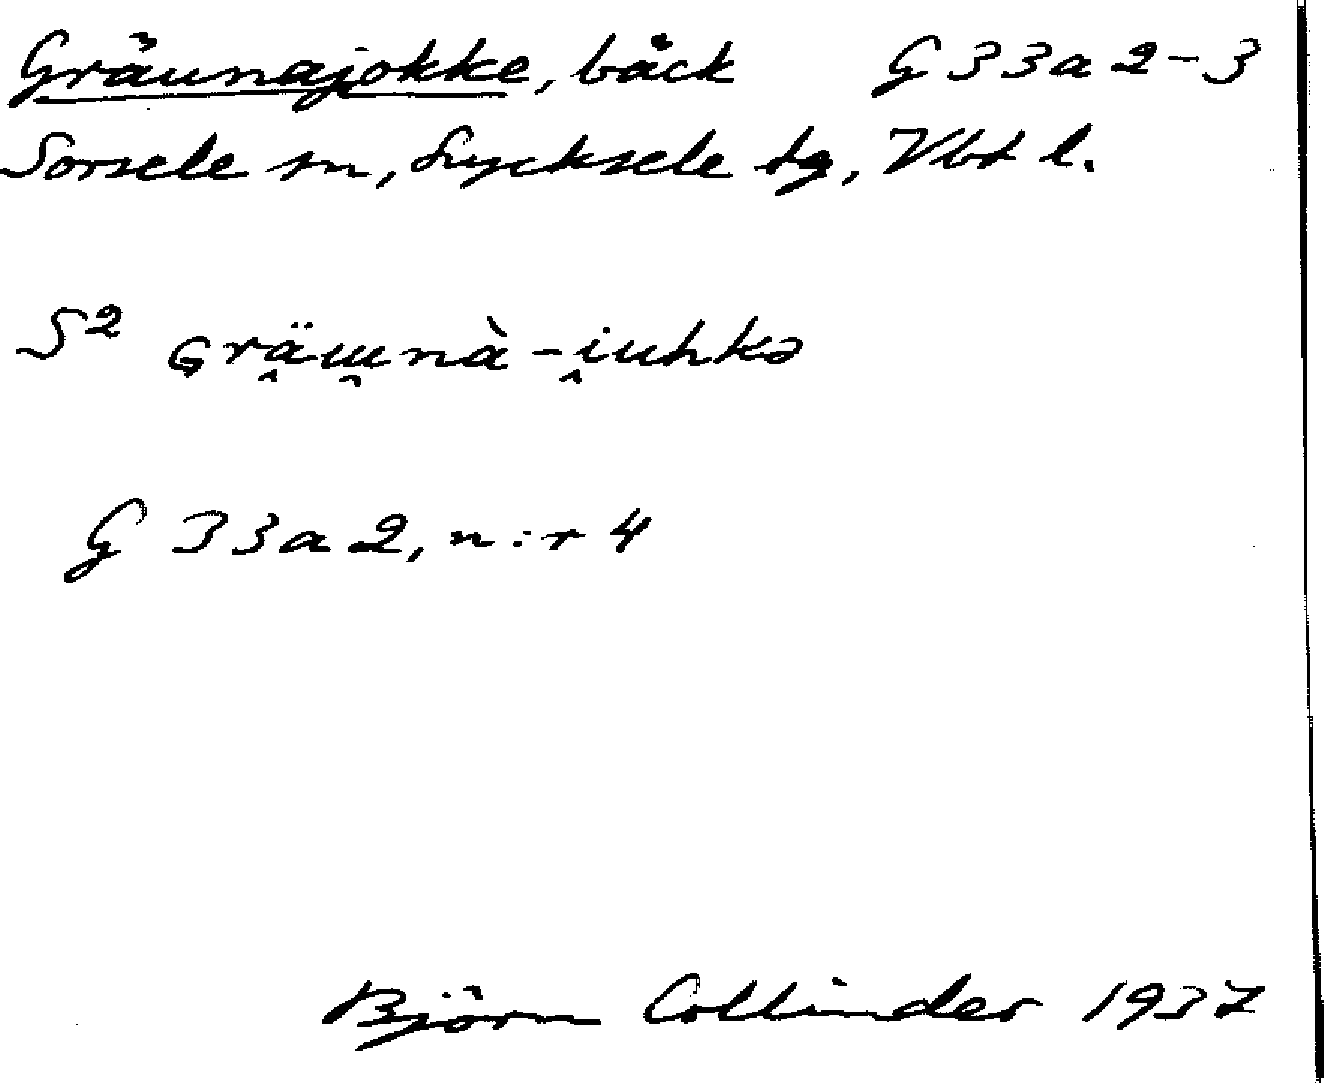 Gräunajokke, bäck G 33a 2-3
Sorsele sn, Lycksele tg, Vbt l.
S² Grä̭ɯ̯nà-i̭uhkə
G 33a2, n:r 4
Björn Collinder 1937